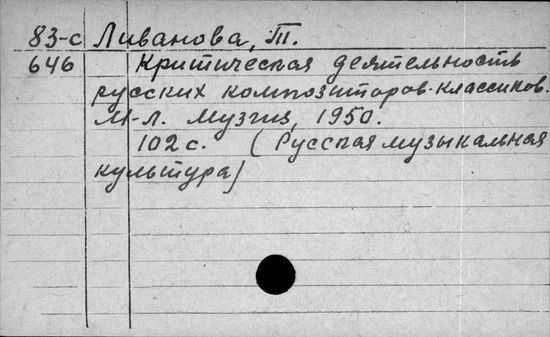 83-с Ливанова, Т.
646 Критическая деятельность
русских композиторов-классиков.
М-Л. Музгиз, 1950.
102 с. (Русская музыкальная
культура)